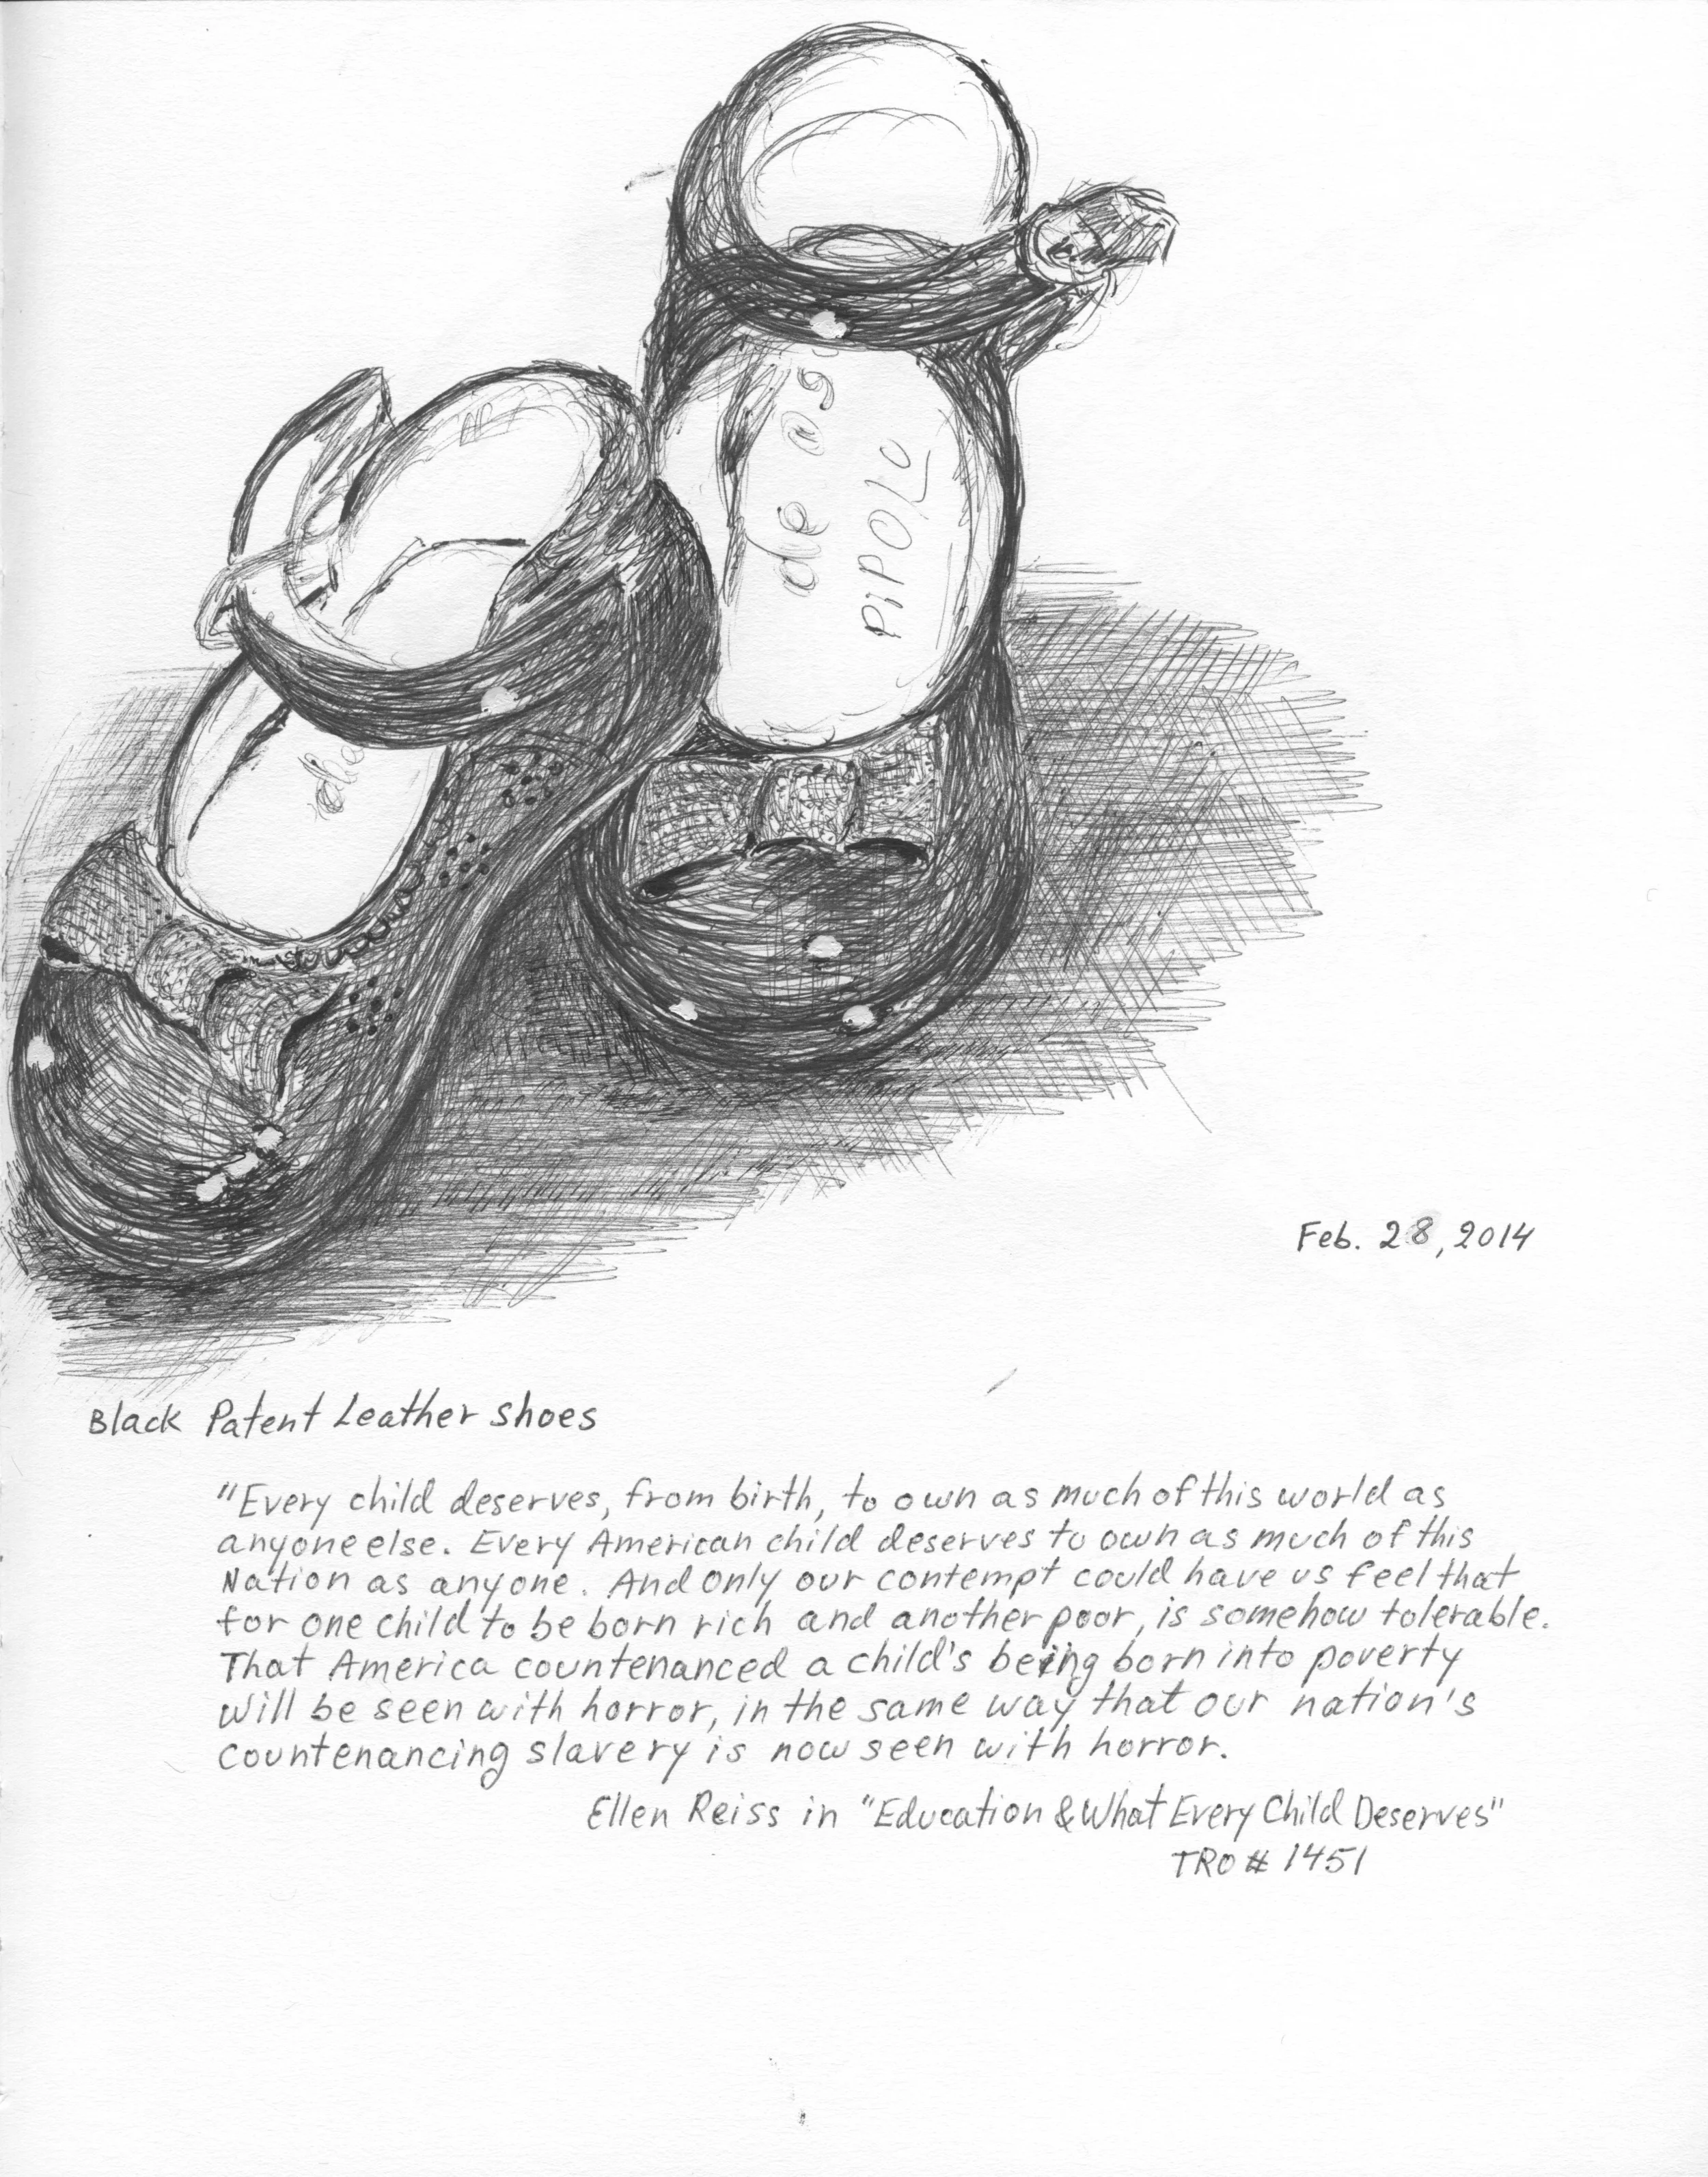 de ag
PIPOLO
Feb. 28, 2014
Black Patent Leather Shoes
"Every child deserves, from birth, to own as much of this world as
anyone else. Every American child deserves to own as much of this
Nation as anyone. And only our contempt could have us feel that
for one child to be born rich and another poor, is somehow tolerable.
That America countenanced a child's being born into poverty
will be seen with horror, in the same way that our nation's
countenancing slavery is now seen with horror.
Ellen Reiss in "Education & What Every Child Deserves"
TRO # 1451